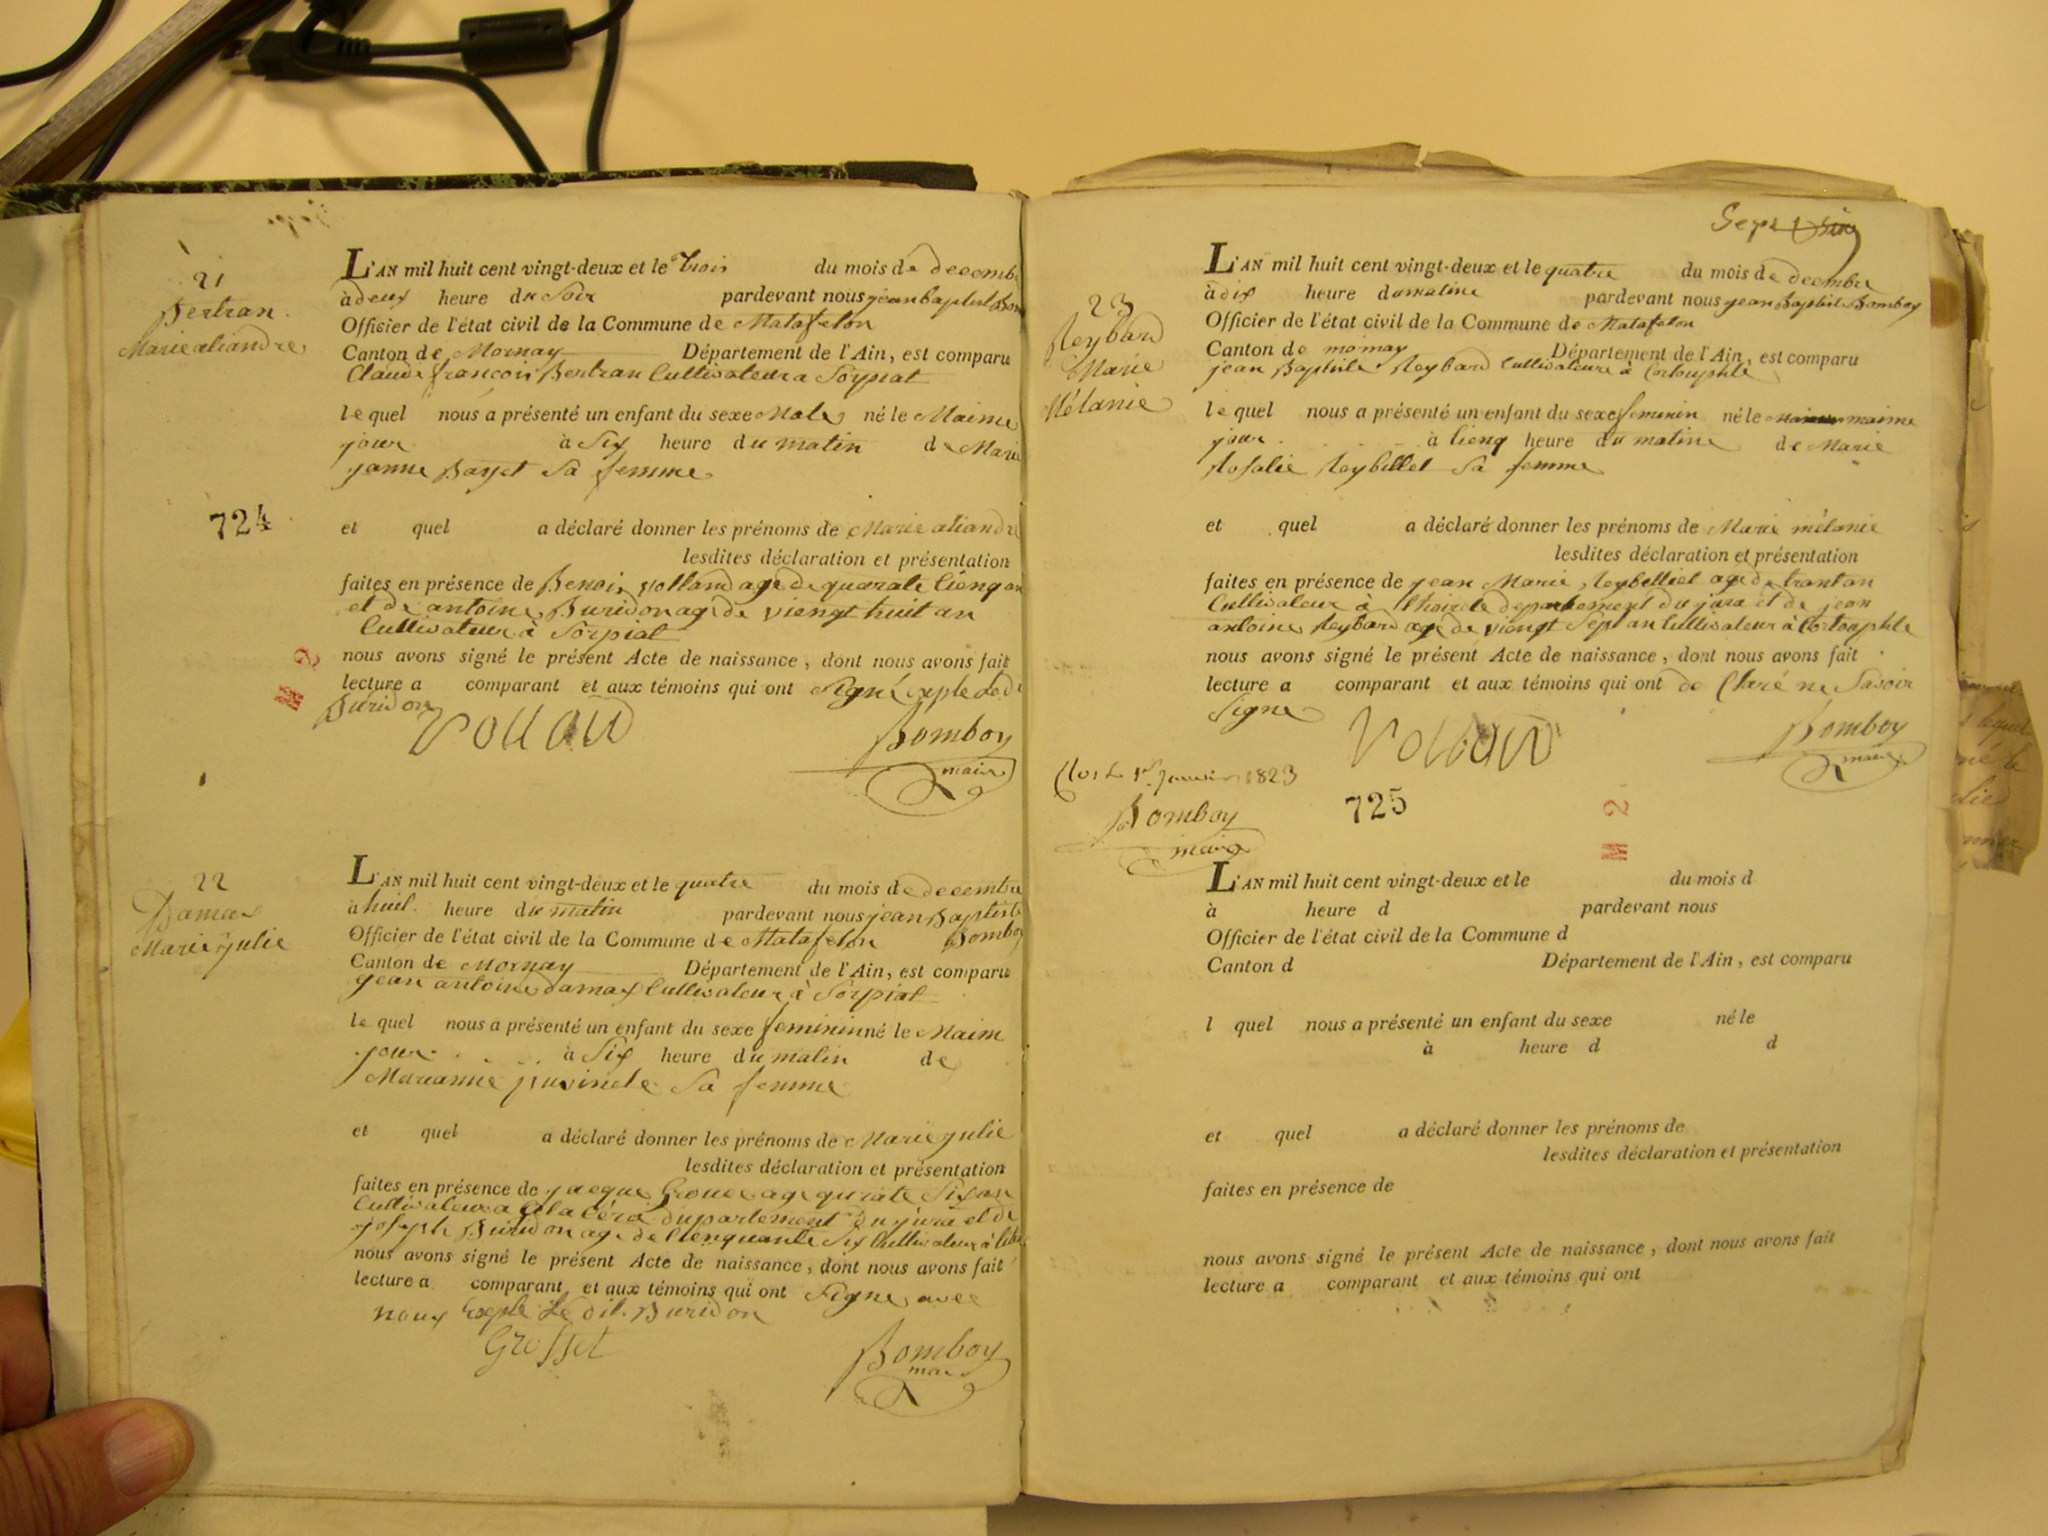 21
Bertran
Marie aliandre
L'AN mil huit cent vingt-deux et le trois du mois de decembre
à deux heure du Soir pardevant nous jean baptist Bom
Officier de l'état civil de la Commune de Matafelon
Canton de Mornay Département de l'Ain, est comparu
Claude francois Bertran Cultivateur a Sorpiat
le quel nous a présenté un enfant du sexe Male né le Maime
jour à Six heure du matin de Marie
janne Bayet Sa femme
724
et quel a déclaré donner les prénoms de Marie aliandre
lesdites déclaration et présentation
faites en présence de Benoir volland age de quarate Cienq an
et de antoine Buridon age de viengt huit an
Cultivateur à Sorpiat
nous avons signé le présent Acte de naissance, dont nous avons fait
lecture a comparant et aux témoins qui ont Signé exple ledi
Buridon
M 2
Volland
Bomboy
maire
22
Damax
Marie julie
L'AN mil huit cent vingt-deux et le quatre du mois de decembre
à huit heure du matin pardevant nous jean Baptiste
Officier de l'état civil de la Commune de Matafelon Bomboy
Canton de Mornay Département de l'Ain, est comparu
jean antoine damax Cultivateur à Sorpiat
le quel nous a présenté un enfant du sexe feminin né le Maim
jour à Six heure du matin de
Marianne Sa femme
et quel a déclaré donner les prénoms de Marie julie
lesdites déclaration et présentation
faites en présence de jacque age qurate Six an
Cultivateur a dupartement du jura et de
joseph Buridon age de Cienquante Six Cultivateur à
nous avons signé le présent Acte de naissance, dont nous avons fait
lecture a comparant et aux témoins qui ont Signe avec
nous Exple Le dit Buridon
Grosset
Bomboy
maire
Sept
23
Reybard
Marie
Mélanie
L'AN mil huit cent vingt-deux et le quatre du mois de decembre
à dix heure du matine pardevant nous jean Baptiste Bomboy
Officier de l'état civil de la Commune de Matafelon
Canton de mornay Département de l'Ain, est comparu
jean Baptiste Reybard Cultivateur à Corlouphle
le quel nous a présenté un enfant du sexe feminin né le maime
jour à Cienq heure du matine de Marie
Rosalie Reybillet Sa femme
et quel a déclaré donner les prénoms de Marie mélanie
lesdites déclaration et présentation
faites en présence de jean Marie Reybellet age de trantan
Cultivateur à departement du jura et de jean
antoine Reybard age de viengt Sept an Cultivateur à
nous avons signé le présent Acte de naissance, dont nous avons fait
lecture a comparant et aux témoins qui ont de Claré ne Savoir
Signe
Volland
Bomboy
maire
Clos Le 1er Janvier 1823
Bomboy
maire
725
M 2
L'AN mil huit cent vingt-deux et le du mois d
à heure d pardevant nous
Officier de l'état civil de la Commune d
Canton d Département de l'Ain, est comparu
l quel nous a présenté un enfant du sexe né le
à heure d d
et quel a déclaré donner les prénoms de
lesdites déclaration et présentation
faites en présence de
nous avons signé le présent Acte de naissance, dont nous avons fait
lecture a comparant et aux témoins qui ont